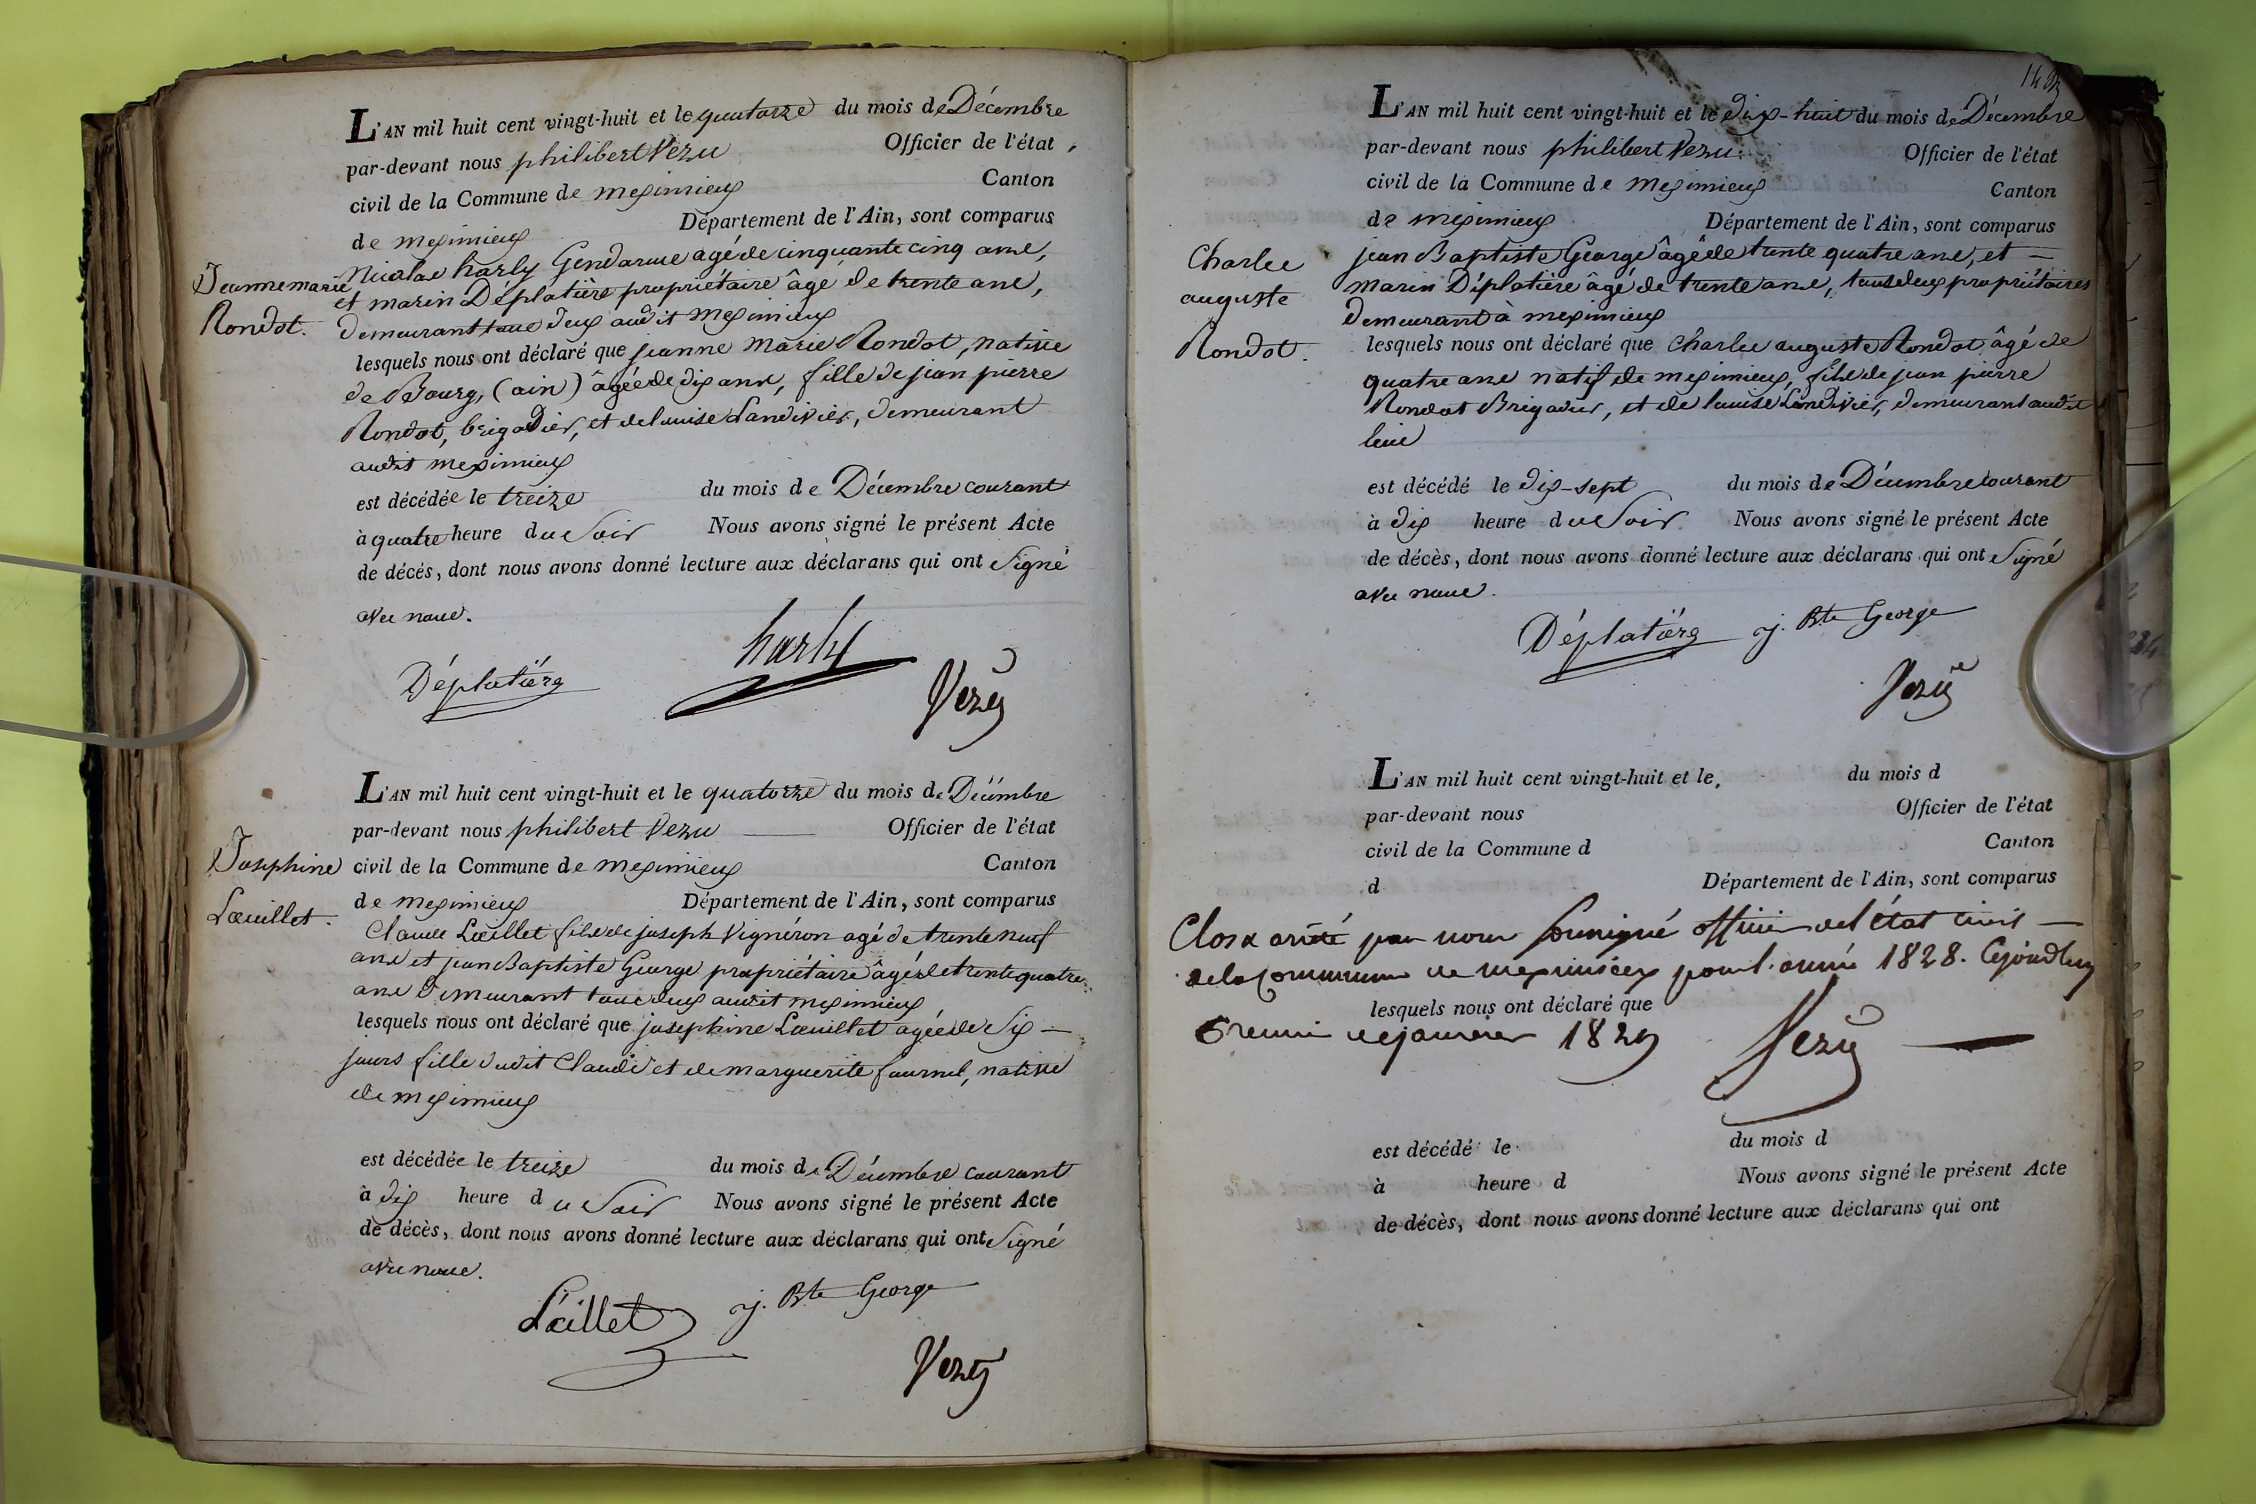 L'AN mil huit cent vingt-huit et le quatorze du mois de Décembre
par-devant nous philibert Vezu Officier de l'état
civil de la Commune de meximieux Canton
de meximieux Département de l'Ain, sont comparus
Nicolas harly Gendarme agé de cinquante cinq ans,
et marin Déplatière propriétaire âgé de trente ans,
demeurant tous deux audit meximieux
Jeanne marie
Rondot.
lesquels nous ont déclaré que jeanne marie Rondot, native
de Bourg, (ain) âgée de dix ans, fille de jean pierre
Rondot, brigadier, et de louise Landivier, demeurant
audit meximieux
est décédée le treize du mois de Décembre courant
à quatre heure du soir Nous avons signé le présent Acte
de décés, dont nous avons donné lecture aux déclarans qui ont signé
avec nous.
Déplatière harly Vezu
L'AN mil huit cent vingt-huit et le quatorze du mois de Décembre
par-devant nous philibert Vezu Officier de l'état
civil de la Commune de meximieux Canton
de meximieux Département de l'Ain, sont comparus
Josephine
Lœuillet.
Claude Lœillet fils de joseph Vignéron agé de trente neuf
ans et jean Baptiste George propriétaire âgé de trente quatre
ans demeurant tous deux audit meximieux
lesquels nous ont déclaré que josephine Lœuillet agée de six
jours fille dudit Claude et de marguerite fournel, native
de meximieux
est décédée le treize du mois de Décembre courant
à dix heure du soir Nous avons signé le présent Acte
de décès, dont nous avons donné lecture aux déclarans qui ont signé
avec nous.
Lœillet j. Bte George
Vezu
L'AN mil huit cent vingt-huit et le dix-huit du mois de Décembre
par-devant nous philibert Vezu Officier de l'état
civil de la Commune de meximieux Canton
de meximieux Département de l'Ain, sont comparus
Charles
auguste
Rondot.
jean Baptiste George âgé de trente quatre ans, et
marin Déplatière âgé de trente ans, tous deux propriétaires
demeurant à meximieux
lesquels nous ont déclaré que Charles auguste Rondot âgé de
quatre ans natif de meximieux, fils de jean pierre
Rondot Brigadier, et de louise Landivier, demeurant audit
lieu
est décédé le dix-sept du mois de Décembre courant
à dix heure du soir. Nous avons signé le présent Acte
de décès, dont nous avons donné lecture aux déclarans qui ont signé
avec nous.
Déplatière j. Bte George
Vezu
L'AN mil huit cent vingt-huit et le, du mois d
par-devant nous Officier de l'état
civil de la Commune d Canton
d Département de l'Ain, sont comparus
Clos & arrêté par nous soussigné officier de l'état civil
de la commune de meximieux pour l'année 1828. Cejourd'huy
lesquels nous ont déclaré que
premier de janvier 1829 Vezu
est décédé le du mois d
à heure d Nous avons signé le présent Acte
de décès, dont nous avons donné lecture aux déclarans qui ont